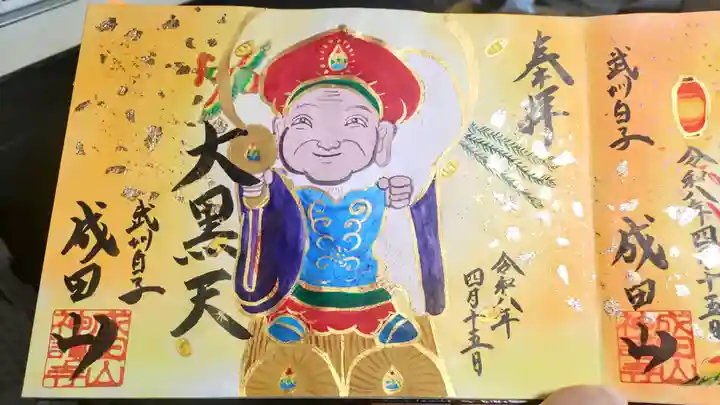 奉拝
令和八年
四月十五日
大黒天
武州白子
成田山
武州白子
令和八年四月十五日
成田山